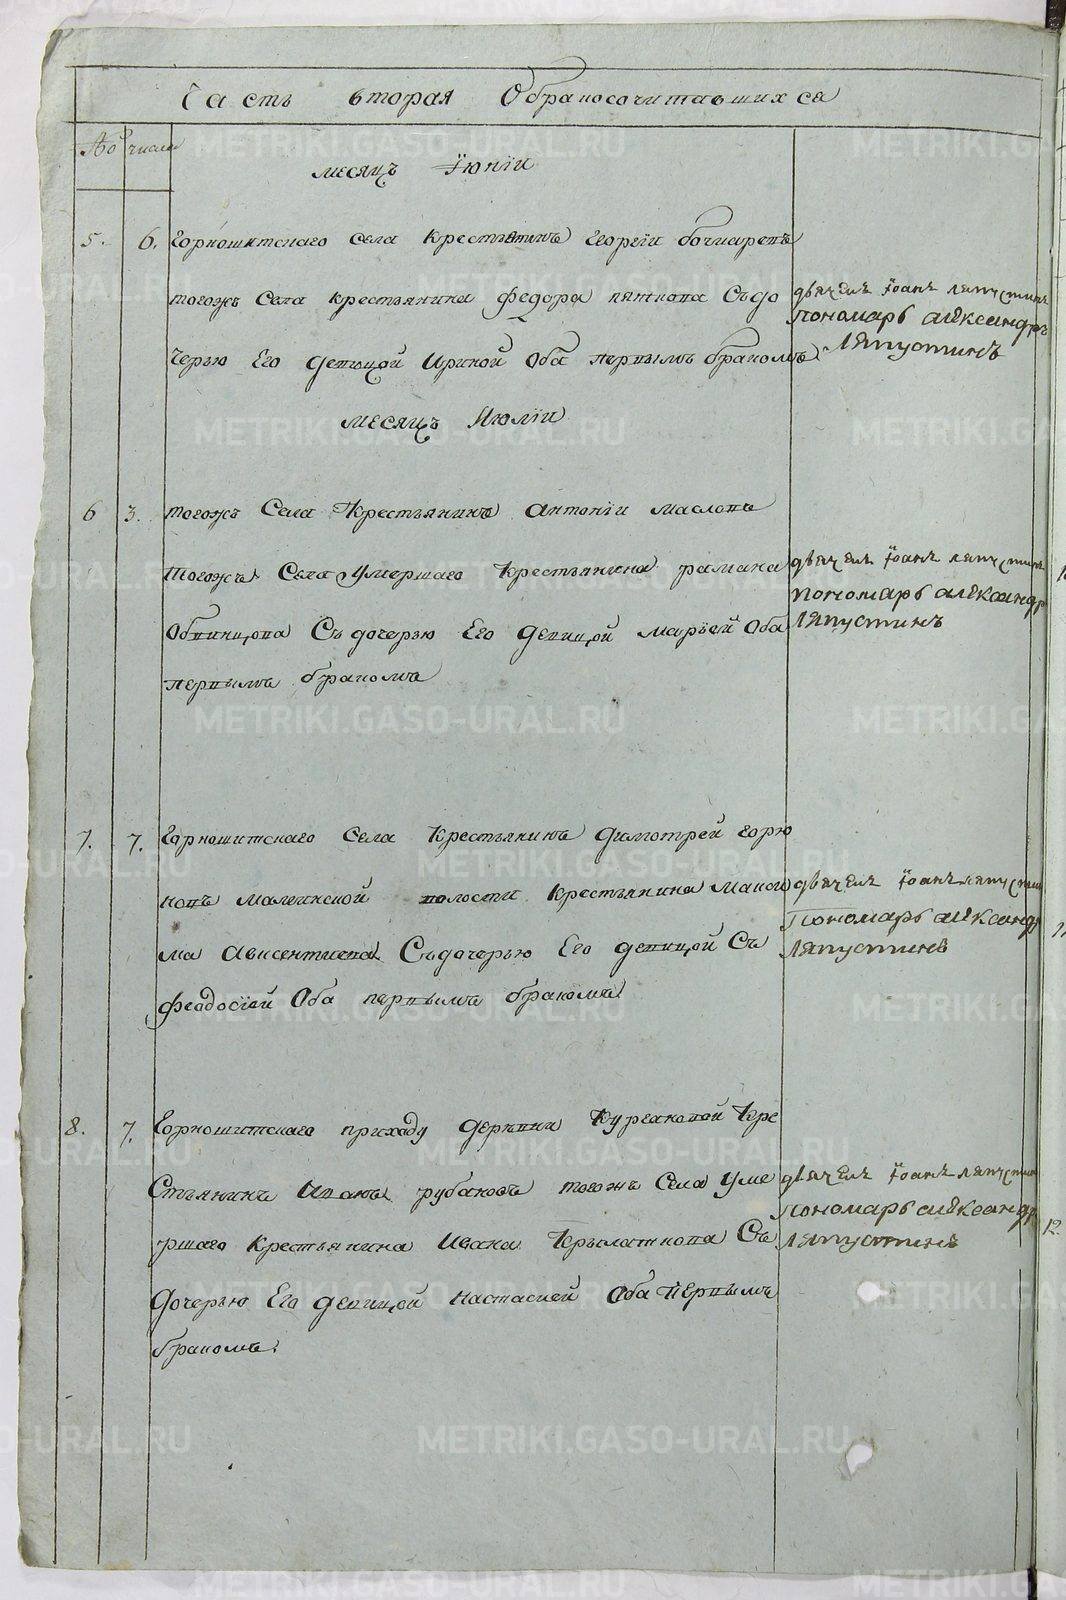 Часть вторая Обракосочитавшихся
№ число
месяцъ Їюнїи
5. 6. Горнощитскаго села крестьянинъ Георгїи бочкаревъ
тогожъ Села крестьянина федора пяткова Съдо
черью Его девицой Ириной Оба первымъ бракомъ
дьячекъ їоанъ ляпустинъ
пономарь александръ
Ляпустинъ
месяцъ Июлїи
6 3. тогожъ Села Крестьянинъ Антонїи масловъ
тогожъ Села умершаго Крестьянина рамана
Обвинцова Съ дочерью Его девицой марьей Оба
первымъ бракомъ
дьячекъ їоанъ ляпустинъ
пономарь александръ
Ляпустинъ
7. 7. Горнощитскаго Села Крестьянинъ димотрей горю
новъ малинской волости Крестьянина макси
ма Авксентиева Съдочерью Его девицой Съ
феодосїей Оба первымъ бракомъ
дьячекъ їоанъ ляпустин
Пономарь александр
Ляпустинъ
8. 7. Горнощитскаго приходу деревни Кургановой Кре
Стьянинъ Иванъ рубаковъ тогожъ Села Уме
ршаго Крестьянина Ивана Крылаткова Съ
Дочерью Его девицой Настасией Оба первымъ
бракомъ
дьячекъ їоанъ ляпустин
пономарь александр
Ляпустинъ
12.
METRIKI.GASO-URAL.RU